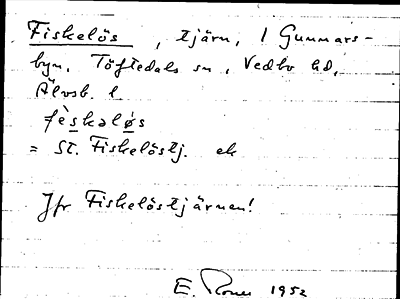 Fiskelös, tjärn, l Gunnars-
byn, Töftedals sn, Vedbo hd,
Älvsb. l
fὲskaløs
= St. Fiskelöstj. ek
Jfr Fiskelöstjärnen!
E. 1952